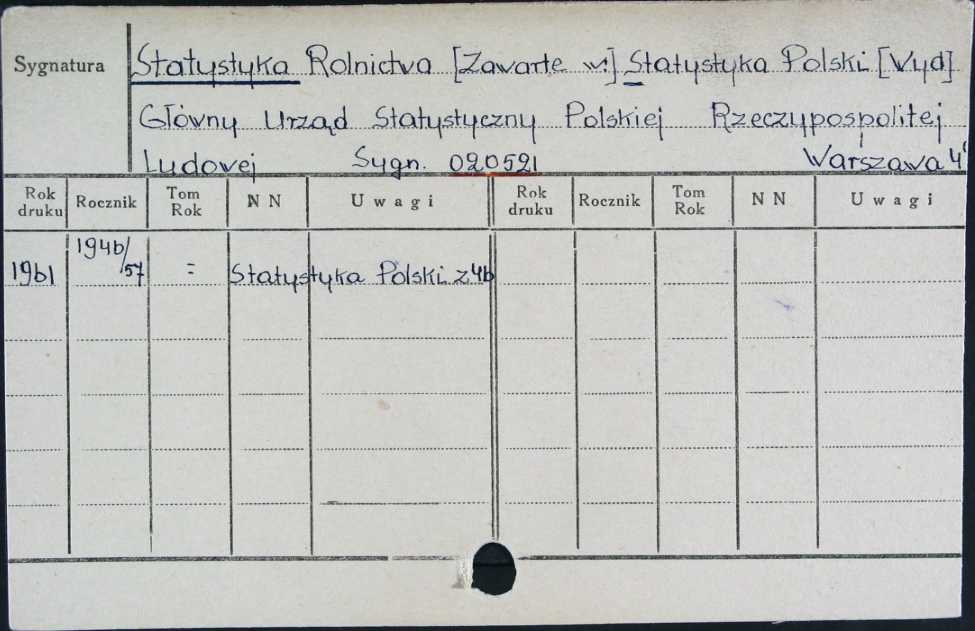 Sygnatura
Statystyka Rolnictwa [Zawarte w:] Statystyka Polski [Wyd]
Główny Urząd Statystyczny Polskiej Rzeczypospolitej
Ludowej Sygn. 020521 Warszawa 4°
Rok druku Rocznik Tom Rok N N Uwagi Rok druku Rocznik Tom Rok N N Uwagi
1961 1946/57 = Statystyka Polski z 46